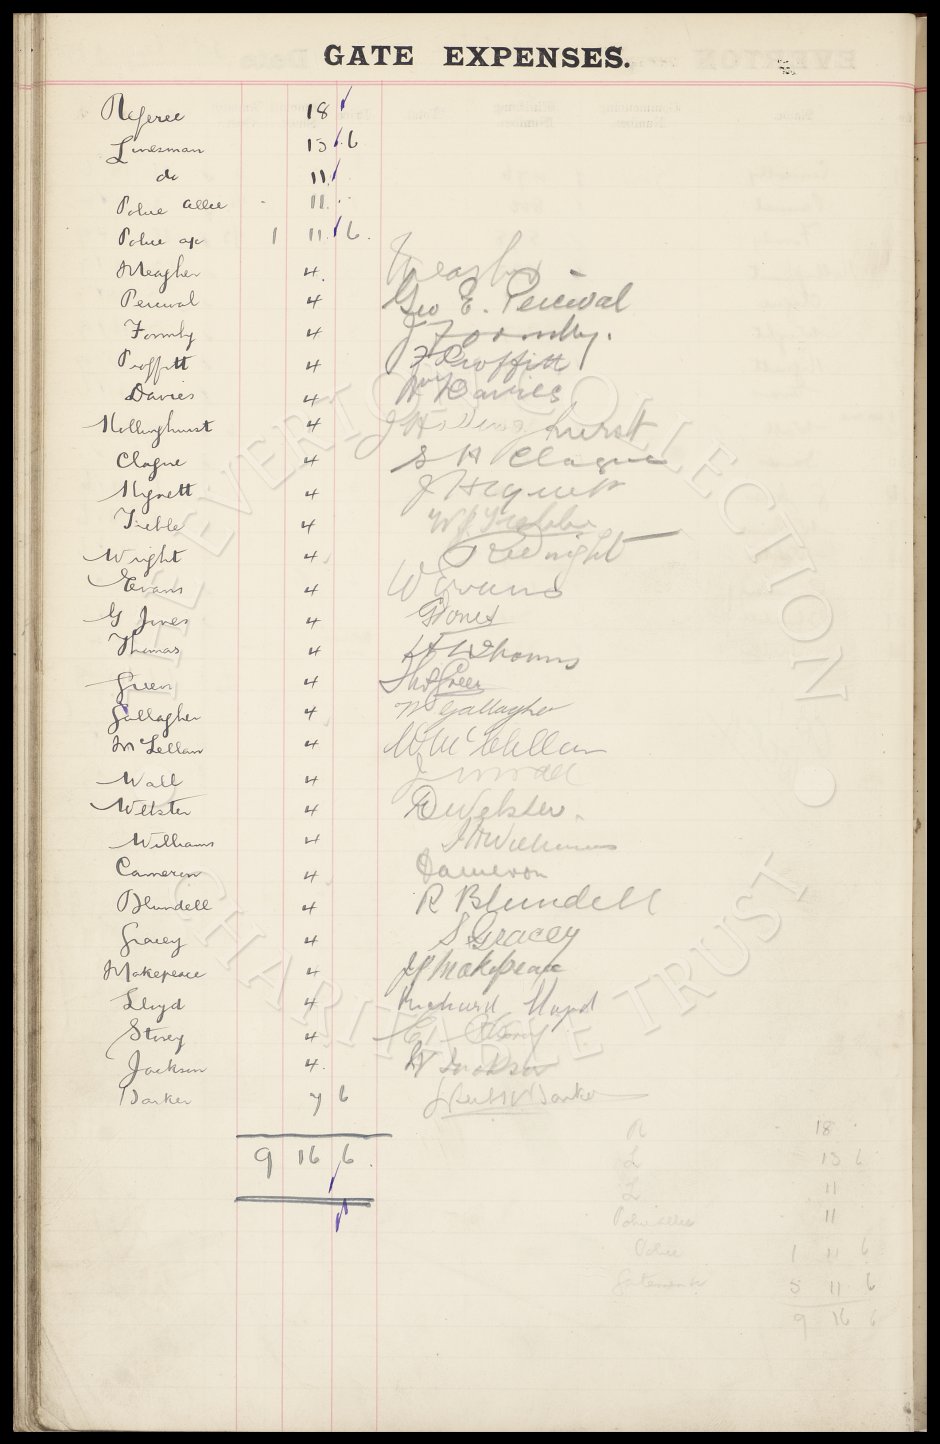 GATE EXPENSES.
Referee 18
Linesman 13 6
do 11
Police allee 11
Police ap 1 11 6
Meagher 4 Meagher
Percival 4 Geo E. Percival
Formby 4 J Formby.
Proffitt 4 F Proffitt
Davies 4 Wm Davies
Hollinghurst 4 J Hollinghurst
Clague 4 S H Clague
Hignett 4 J Hignett
Treble 4 W J Treble
Wright 4 Wright
Evans 4 W Evans
G Jones 4 G Jones
Thomas 4 Thomas
Green 4 Thos Green
Gallagher 4 Wm Gallagher
McLellan 4 W McClellan
Wall 4 J Wall
Webster 4 Webster.
Williams 4 Williams
Cameron 4 Cameron
Blundell 4 R Blundell
Gracey 4 S Gracey
Makepeace 4 Makepeace
Lloyd 4 Richard Lloyd
Storey 4 Storey
Jackson 4 W Jackson
Barker 7 6 Barker
9 16 6
R 18
L 13 6
L 11
Police allee 11
Police 1 11 6
Gatemen 5 11 6
9 16 6
THE EVERTON COLLECTION CHARITABLE TRUST
©